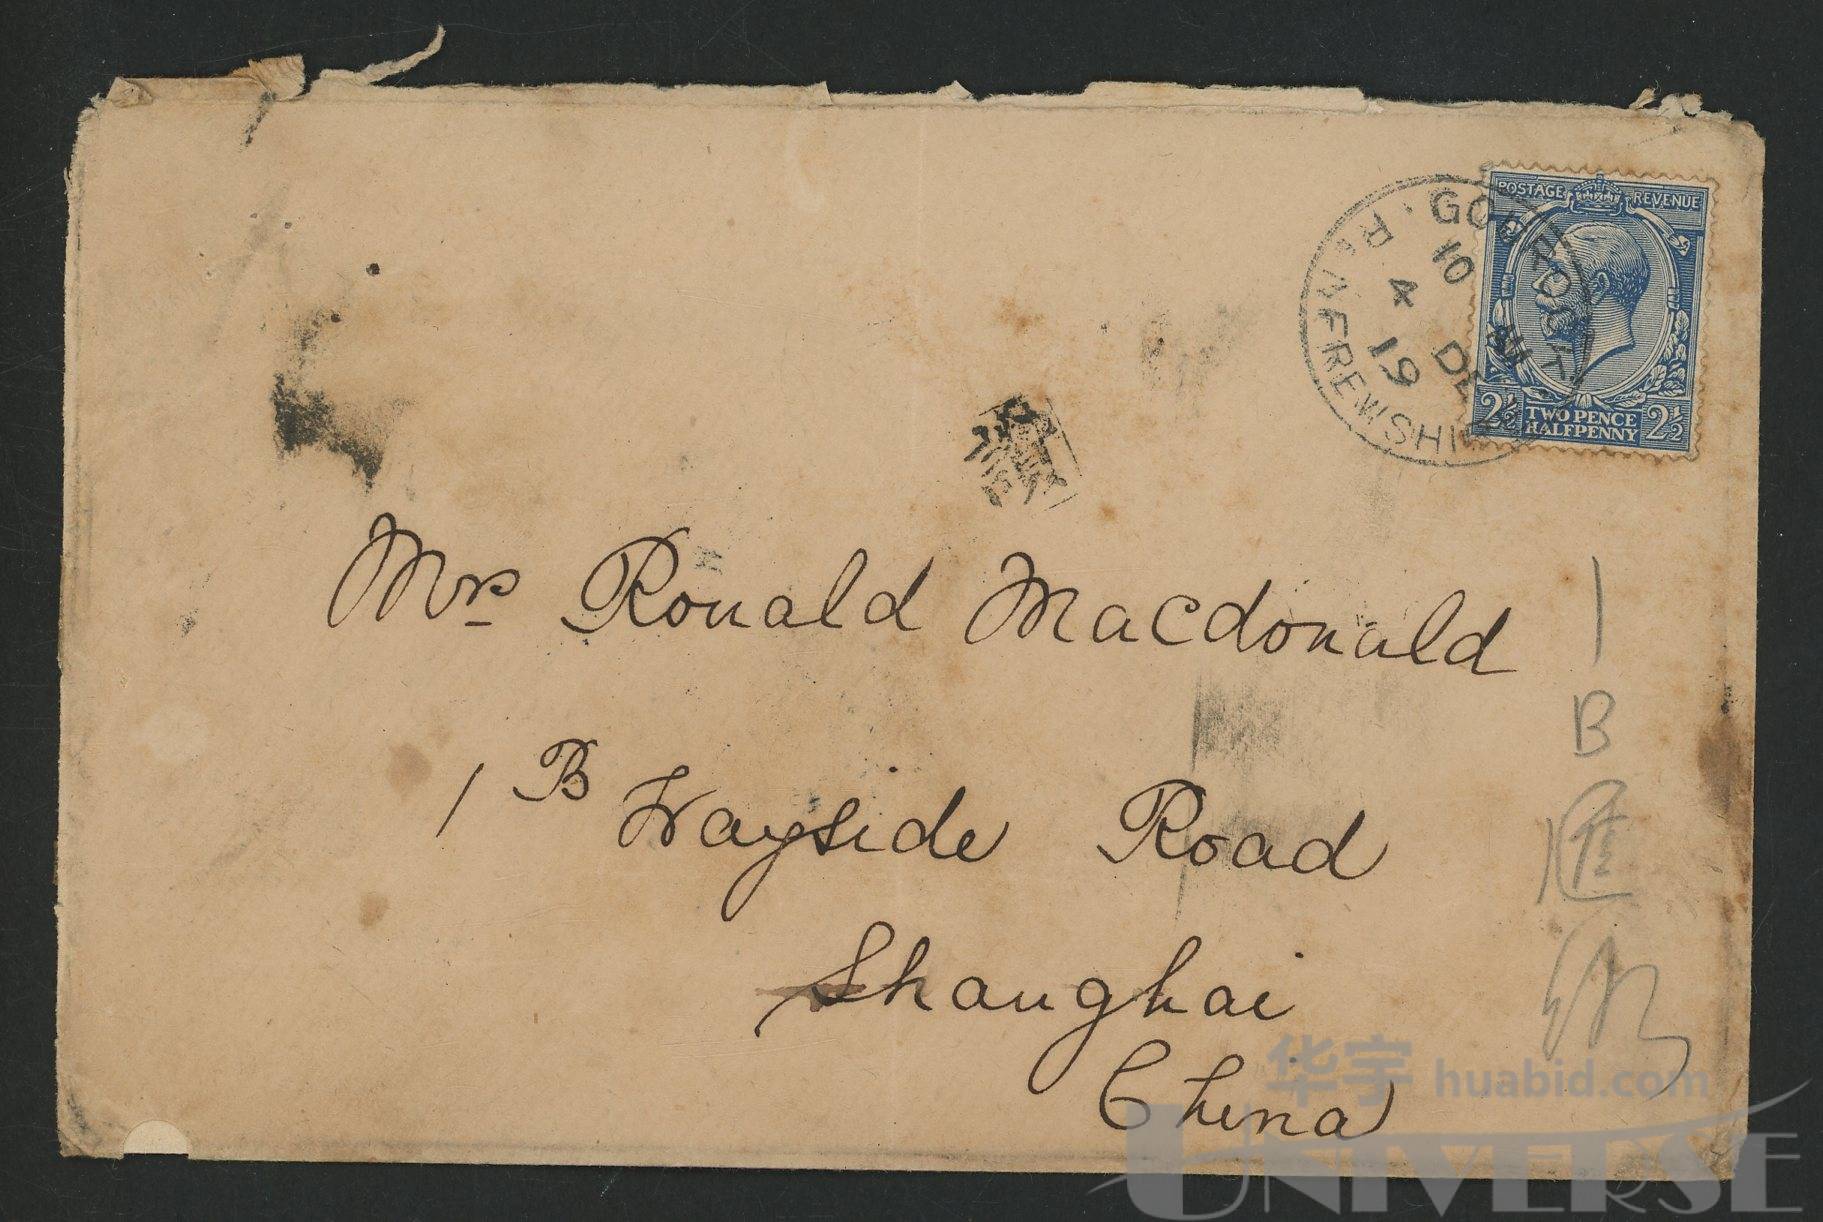 POSTAGE REVENUE
2½ TWO PENCE HALFPENNY 2½
GOUROCK
10 AM
4 DE
19
RENFREWSHIRE
Mrs Ronald Macdonald
1 B Wayside Road
Shanghai
China
1
B
匯
华宇 huabid.com
UNIVERSE